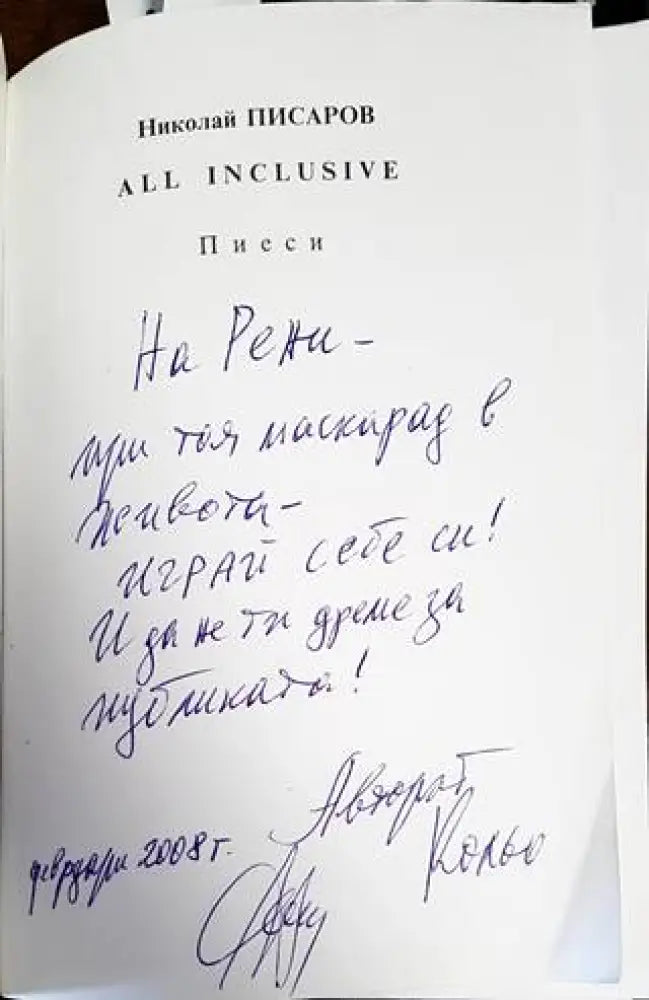 Николай ПИСАРОВ
ALL INCLUSIVE
Писси
На Рени –
при тоя маскарад в
живота –
ИГРАЙ себе си!
И да не ти дреме за
публиката!
Авторът
Кольо
февруари 2008 г.